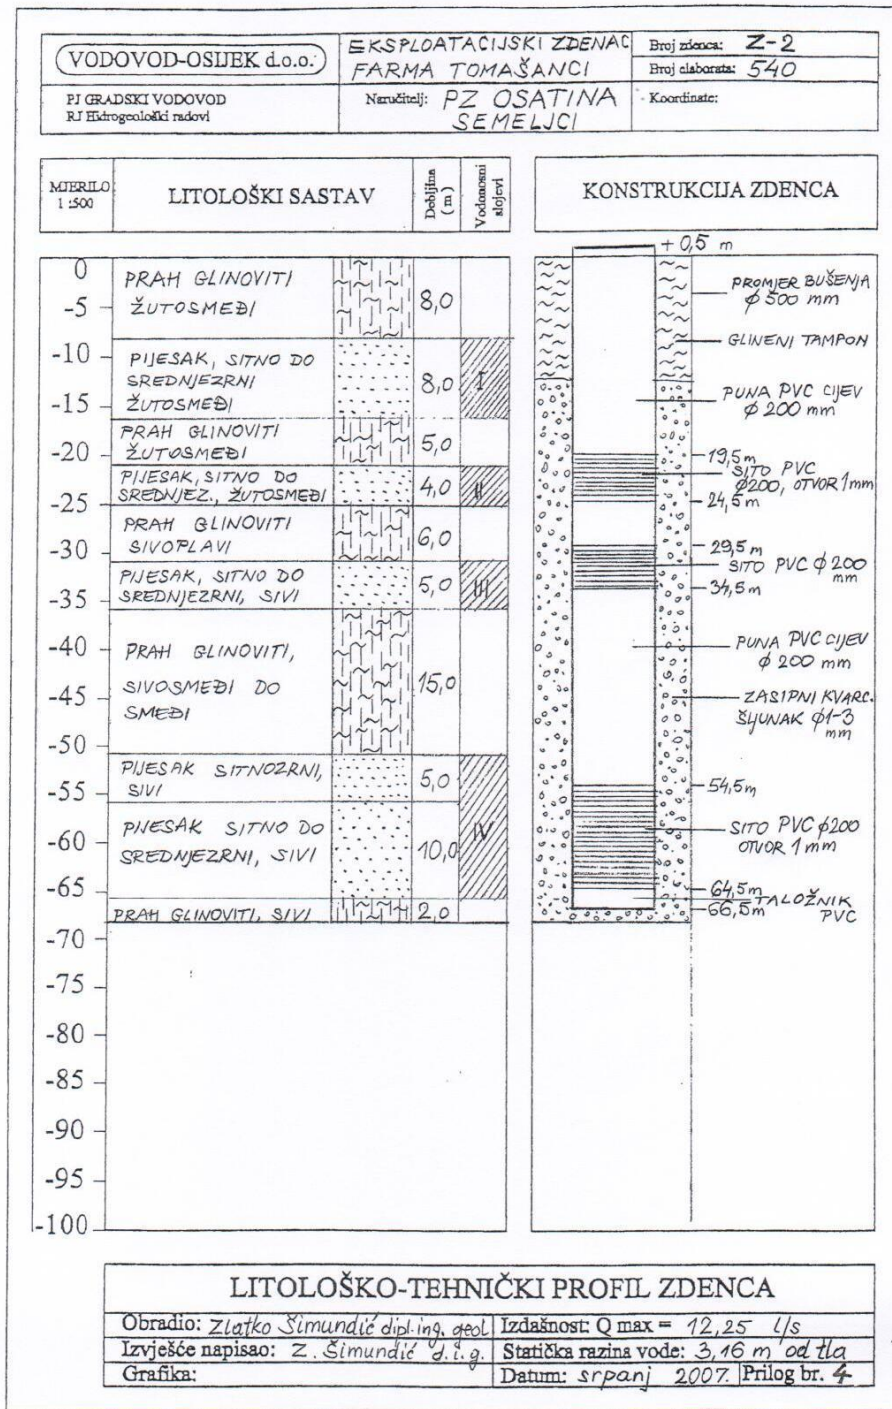 VODOVOD-OSIJEK d.o.o.
PJ GRADSKI VODOVOD
RJ Hidrogeološki radovi
EKSPLOATACIJSKI ZDENAC
FARMA TOMAŠANCI
Naručitelj: PZ OSATINA
SEMELJCI
Broj zdenca: Z-2
Broj elaborata: 540
Koordinate:
MJERILO
1 :500
LITOLOŠKI SASTAV
Debljina
(m)
Vodonosni
slojevi
KONSTRUKCIJA ZDENCA
0
-5
-10
-15
-20
-25
-30
-35
-40
-45
-50
-55
-60
-65
-70
-75
-80
-85
-90
-95
-100
PRAH GLINOVITI
ŽUTOSMEĐI
8,0
PIJESAK, SITNO DO
SREDNJEZRNI
ŽUTOSMEĐI
8,0
I
PRAH GLINOVITI
ŽUTOSMEĐI
5,0
PIJESAK, SITNO DO
SREDNJEZ., ŽUTOSMEĐI
4,0
II
PRAH GLINOVITI
SIVOPLAVI
6,0
PIJESAK, SITNO DO
SREDNJEZRNI, SIVI
5,0
III
PRAH GLINOVITI,
SIVOSMEĐI DO
SMEĐI
15,0
PIJESAK SITNOZRNI,
SIVI
5,0
PIJESAK SITNO DO
SREDNJEZRNI, SIVI
10,0
IV
PRAH GLINOVITI, SIVI
2,0
+0,5 m
PROMJER BUŠENJA
φ 500 mm
GLINENI TAMPON
PUNA PVC CIJEV
φ 200 mm
19,5 m
SITO PVC
φ200, OTVOR 1mm
24,5 m
29,5 m
SITO PVC φ 200
mm
34,5 m
PUNA PVC CIJEV
φ 200 mm
ZASIPNI KVARC.
ŠLJUNAK φ1-3
mm
54,5m
SITO PVC φ200
OTVOR 1 mm
64,5m
TALOŽNIK
PVC
66,5m
LITOLOŠKO-TEHNIČKI PROFIL ZDENCA
Obradio: Zlatko Šimundić dipl.ing. geol
Izdašnost: Q max = 12,25 l/s
Izvješće napisao: Z. Šimundić d.i.g.
Statička razina vode: 3,16 m od tla
Grafika:
Datum: srpanj 2007.
Prilog br. 4